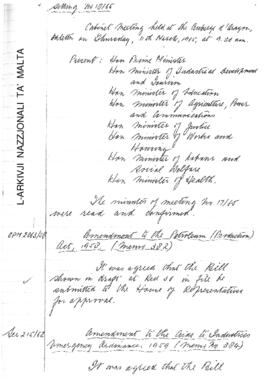 Meeting No 18/65
Cabinet Meeting held at the Auberge d'Aragon,
Valletta on Thursday, March, 1965 at 9.30 a.m.
Present: Hon Prime Minister
Hon Minister of Industrial Development
and Tourism
Hon Minister of Education
Hon Minister of Agriculture, Power
and Communications
Hon Minister of Justice
Hon Minister of Works and
Housing
Hon Minister of Labour and
Social Welfare
Hon Minister of Health.
The minutes of meeting No 17/65
were read and confirmed.
Amendment to the Petroleum (Production)
Act, 1958. (Memo 382)
It was agreed that the Bill
shown in draft at Red 38 in file be
submitted to the House of Representatives
for approval.
Amendment to the Aids to Industries
Emergency Ordinance, 1959 (Memo No 384)
It was agreed that the Bill
L-ARKIVJI NAZZJONALI TA' MALTA